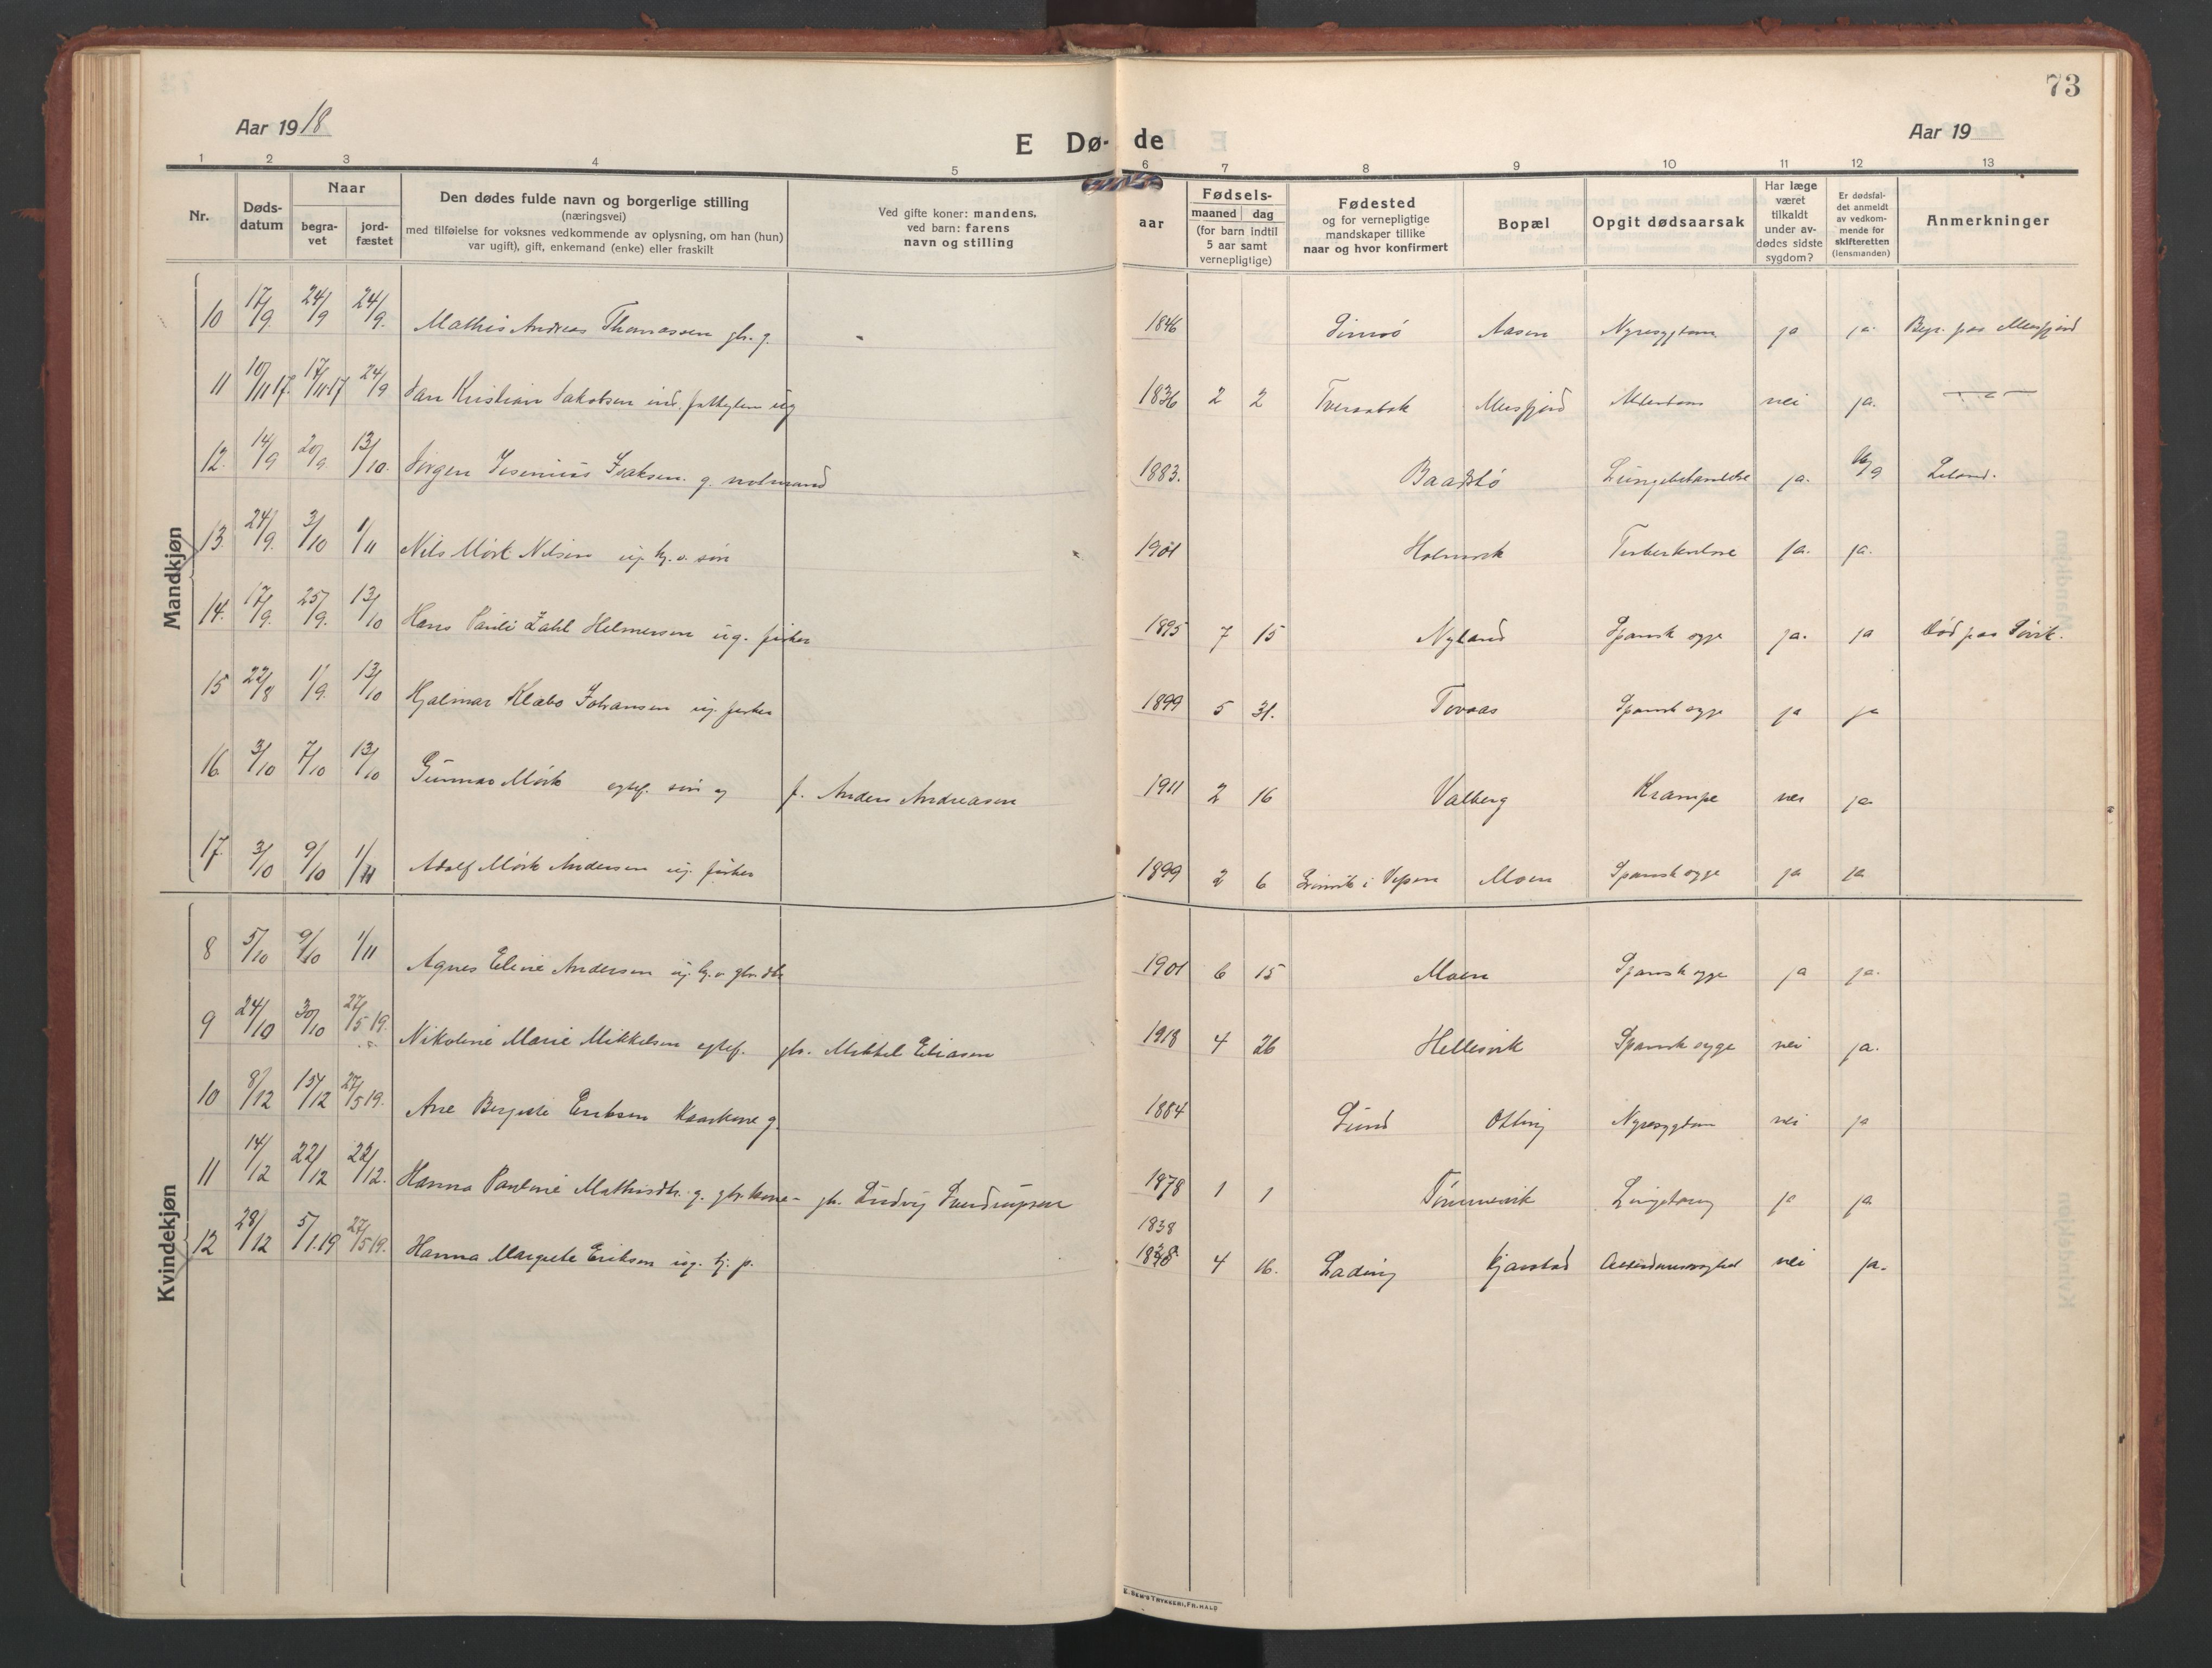 73
Aar 1918
E Dø- de
Aar 19
1 2 3 4 5 6 7 8 9 10 11 12 13
Nr.
Døds-
datum
Naar
begra-
vet
jord-
fæstet
Den dødes fulde navn og borgerlige stilling
(næringsvei)
med tilføielse for voksnes vedkommende av oplysning, om han (hun)
var ugift), gift, enkemand (enke) eller fraskilt
Ved gifte koner: mandens,
ved barn: farens
navn og stilling
aar
Fødsels-
maaned dag
(for barn indtil
5 aar samt
vernepligtige)
Fødested
og for vernepligtige
mandskaper tillike
naar og hvor konfirmert
Bopæl
Opgit dødsaarsak
Har læge
været
tilkaldt
under av-
dødes sidste
sygdom?
Er dødsfal-
det anmeldt
av vedkom-
mende for
skifteretten
(lensmanden)
Anmerkninger
Mandkjøn
10 17/9. 24/9 24/9. Mathis Andreas Thomassen gbr. g. 1846 Aasen Nyresygdom ja ja. Begr. paa Meisfjord
11 10/11 17. 17/11-17 24/9 Jan Kristian Jakobsen ind. ug 1836 2 2 Meisfjord Alderdom nei ja. — " —
12. 14/9 20/9 13/10. Jørgen Isaksen. g. notmand 1883. Baadstø ja. 16/9 Leland.
13. 24/9. 3/10 1/11 Nils Mørk Nilsen ug. hj. v. søn 1901 Holmvik Tuberkulose ja. ja.
14. 17/9. 25/9. 13/10 Hans Pauli Zahl Helmersen ug. fisker 1895 7 15 Nyland Spansk syge ja. ja Død paa Søvik.
15 22/8 1/9. 13/10 Hjalmar Klæbo Johansen ug. fisker 1899 5 31. Tovaas Spansk syge ja ja
16 3/10 7/10 13/10 Gunnar Mørk egtef. søn ug f. Anders Andreasen 1911 2 16 Valberg Krampe nei ja
17. 3/10 9/10 1/11 Adolf Mørk Andersen ug. fisker 1899 2 6 i Vefsen Moen Spansk syge ja ja
Kvindekjøn
8 5/10 9/10 1/11 Agnes Eline Andersen ug. hj. v gbr. dtr 1901 6 15 Moen Spansk syge ja ja.
9 24/10 30/10 27/5 19. Nikoline Marie Mikkelsen egtef. gbr. Mikkel Eliasen 1918 4 26 Hellesvik Spansk syge nei ja.
10 8/12 15/12 27/5 19. Ane Bergitte Eriksen g. 1884 Sund Olting Nyresygdom nei ja
11 14/12 22/12 22/12. Hanna Pauline Mathisdtr. g. gbr. kone - gbr. Ludvig 1878 1 1 Tømmervik ja ja
12 28/12 5/1.19 27/5 19. Hanna Margrete Eriksen ug. hj. p. 1838 4 16. Lading Kjarstad nei ja.
E. SEM'S TRYKKERI, FR.HALD